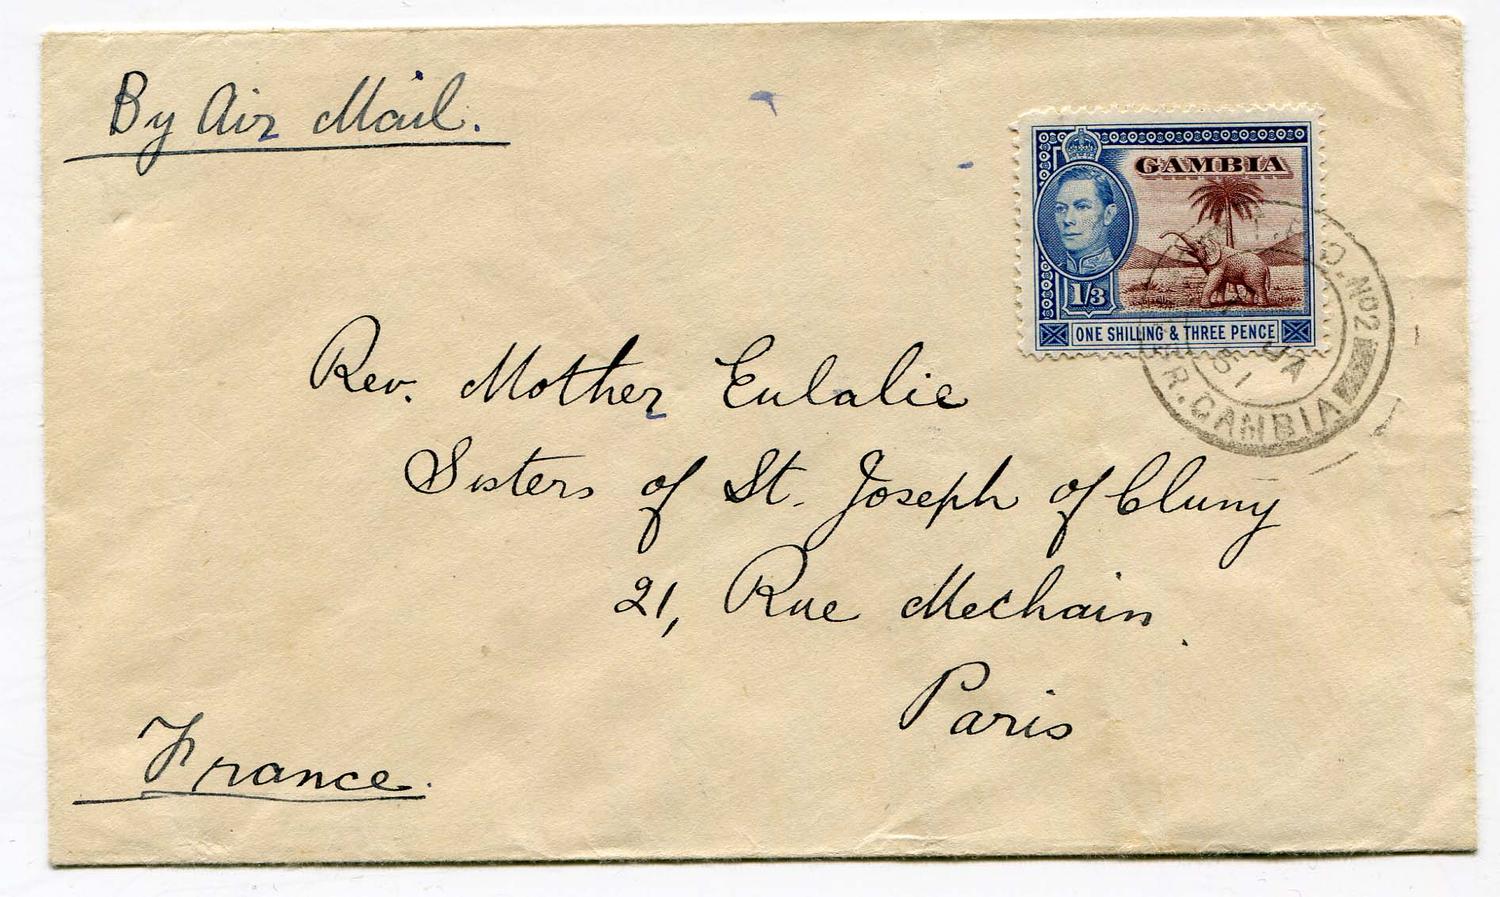 By Air Mail.
GAMBIA
1/3
ONE SHILLING & THREE PENCE
P.O. No2
R. GAMBIA
JA
51
Rev. Mother Eulalie
Sisters of St. Joseph of Cluny
21, Rue Mechain
Paris
France.